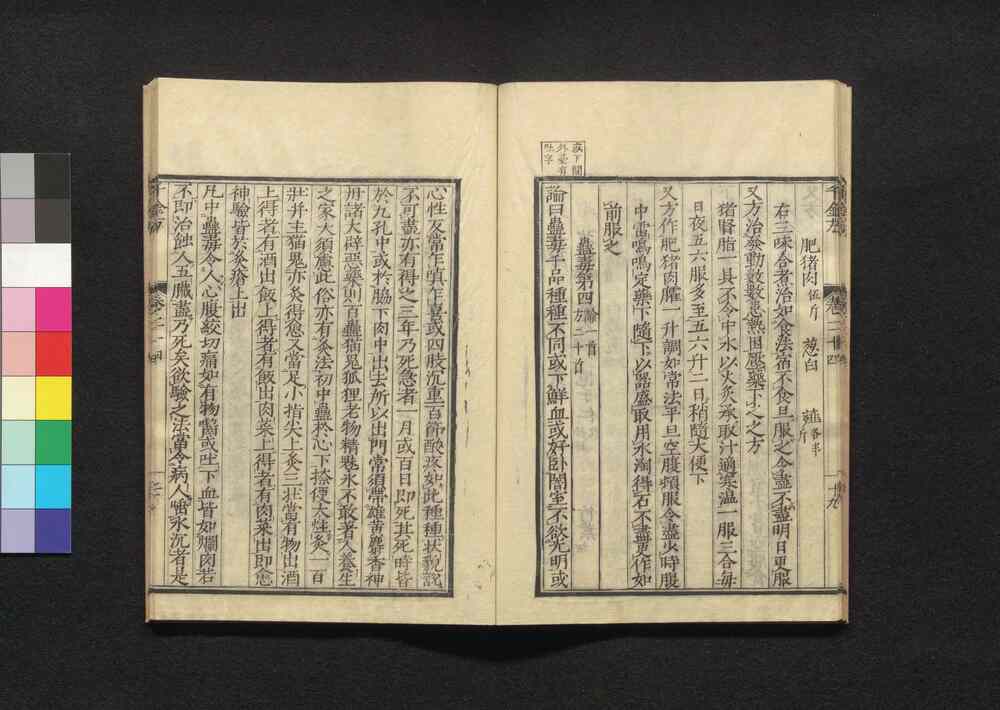 肥猪肉 伍斤 葱白 薤各半斤
右三味合煮治如食法宿不食旦服之令盡不盡明日更服
又方治發動數數患熱困下石之方
猪腎脂一具不令中水以火炙承取汁適寒温一服三合每
日夜五六服多至五六升二日稍隨大便下
又方作肥猪肉臛一升調如常法平旦空腹頓服令盡少時腹
中雷鳴鳴定藥下隨下以器盛取用水淘得石不盡更作如
前服之
蠱毒第四 論一首 方二十首
論曰蠱毒千品種種不同或下鮮血或好卧闇室不欲光明或
心性反常乍嗔乍喜或四肢沉重百節酸疼如此種種狀貌說
不可盡亦有得之三年乃死急者一月或百日即死其死時皆
於九孔中或於脇下肉中出去所以出門常須帶雄黄麝香神
丹諸大辟惡藥則百蠱猫鬼狐狸老物精魅永不敢著人養生
之家大須慮此俗亦有灸法初中蠱於心下捺便大炷灸一百
壯并主猫鬼亦灸得愈又當足小指尖上灸三壯當有物出酒
上得者有酒出飯上得者有飯出肉菜上得者有肉菜出即愈
神驗皆於灸瘡上出
凡中蠱毒令人心腹絞切痛如有物嚙或吐下血皆如爛肉若
不即治蝕人五臟盡乃死矣欲驗之法當令病人唾水沉者是